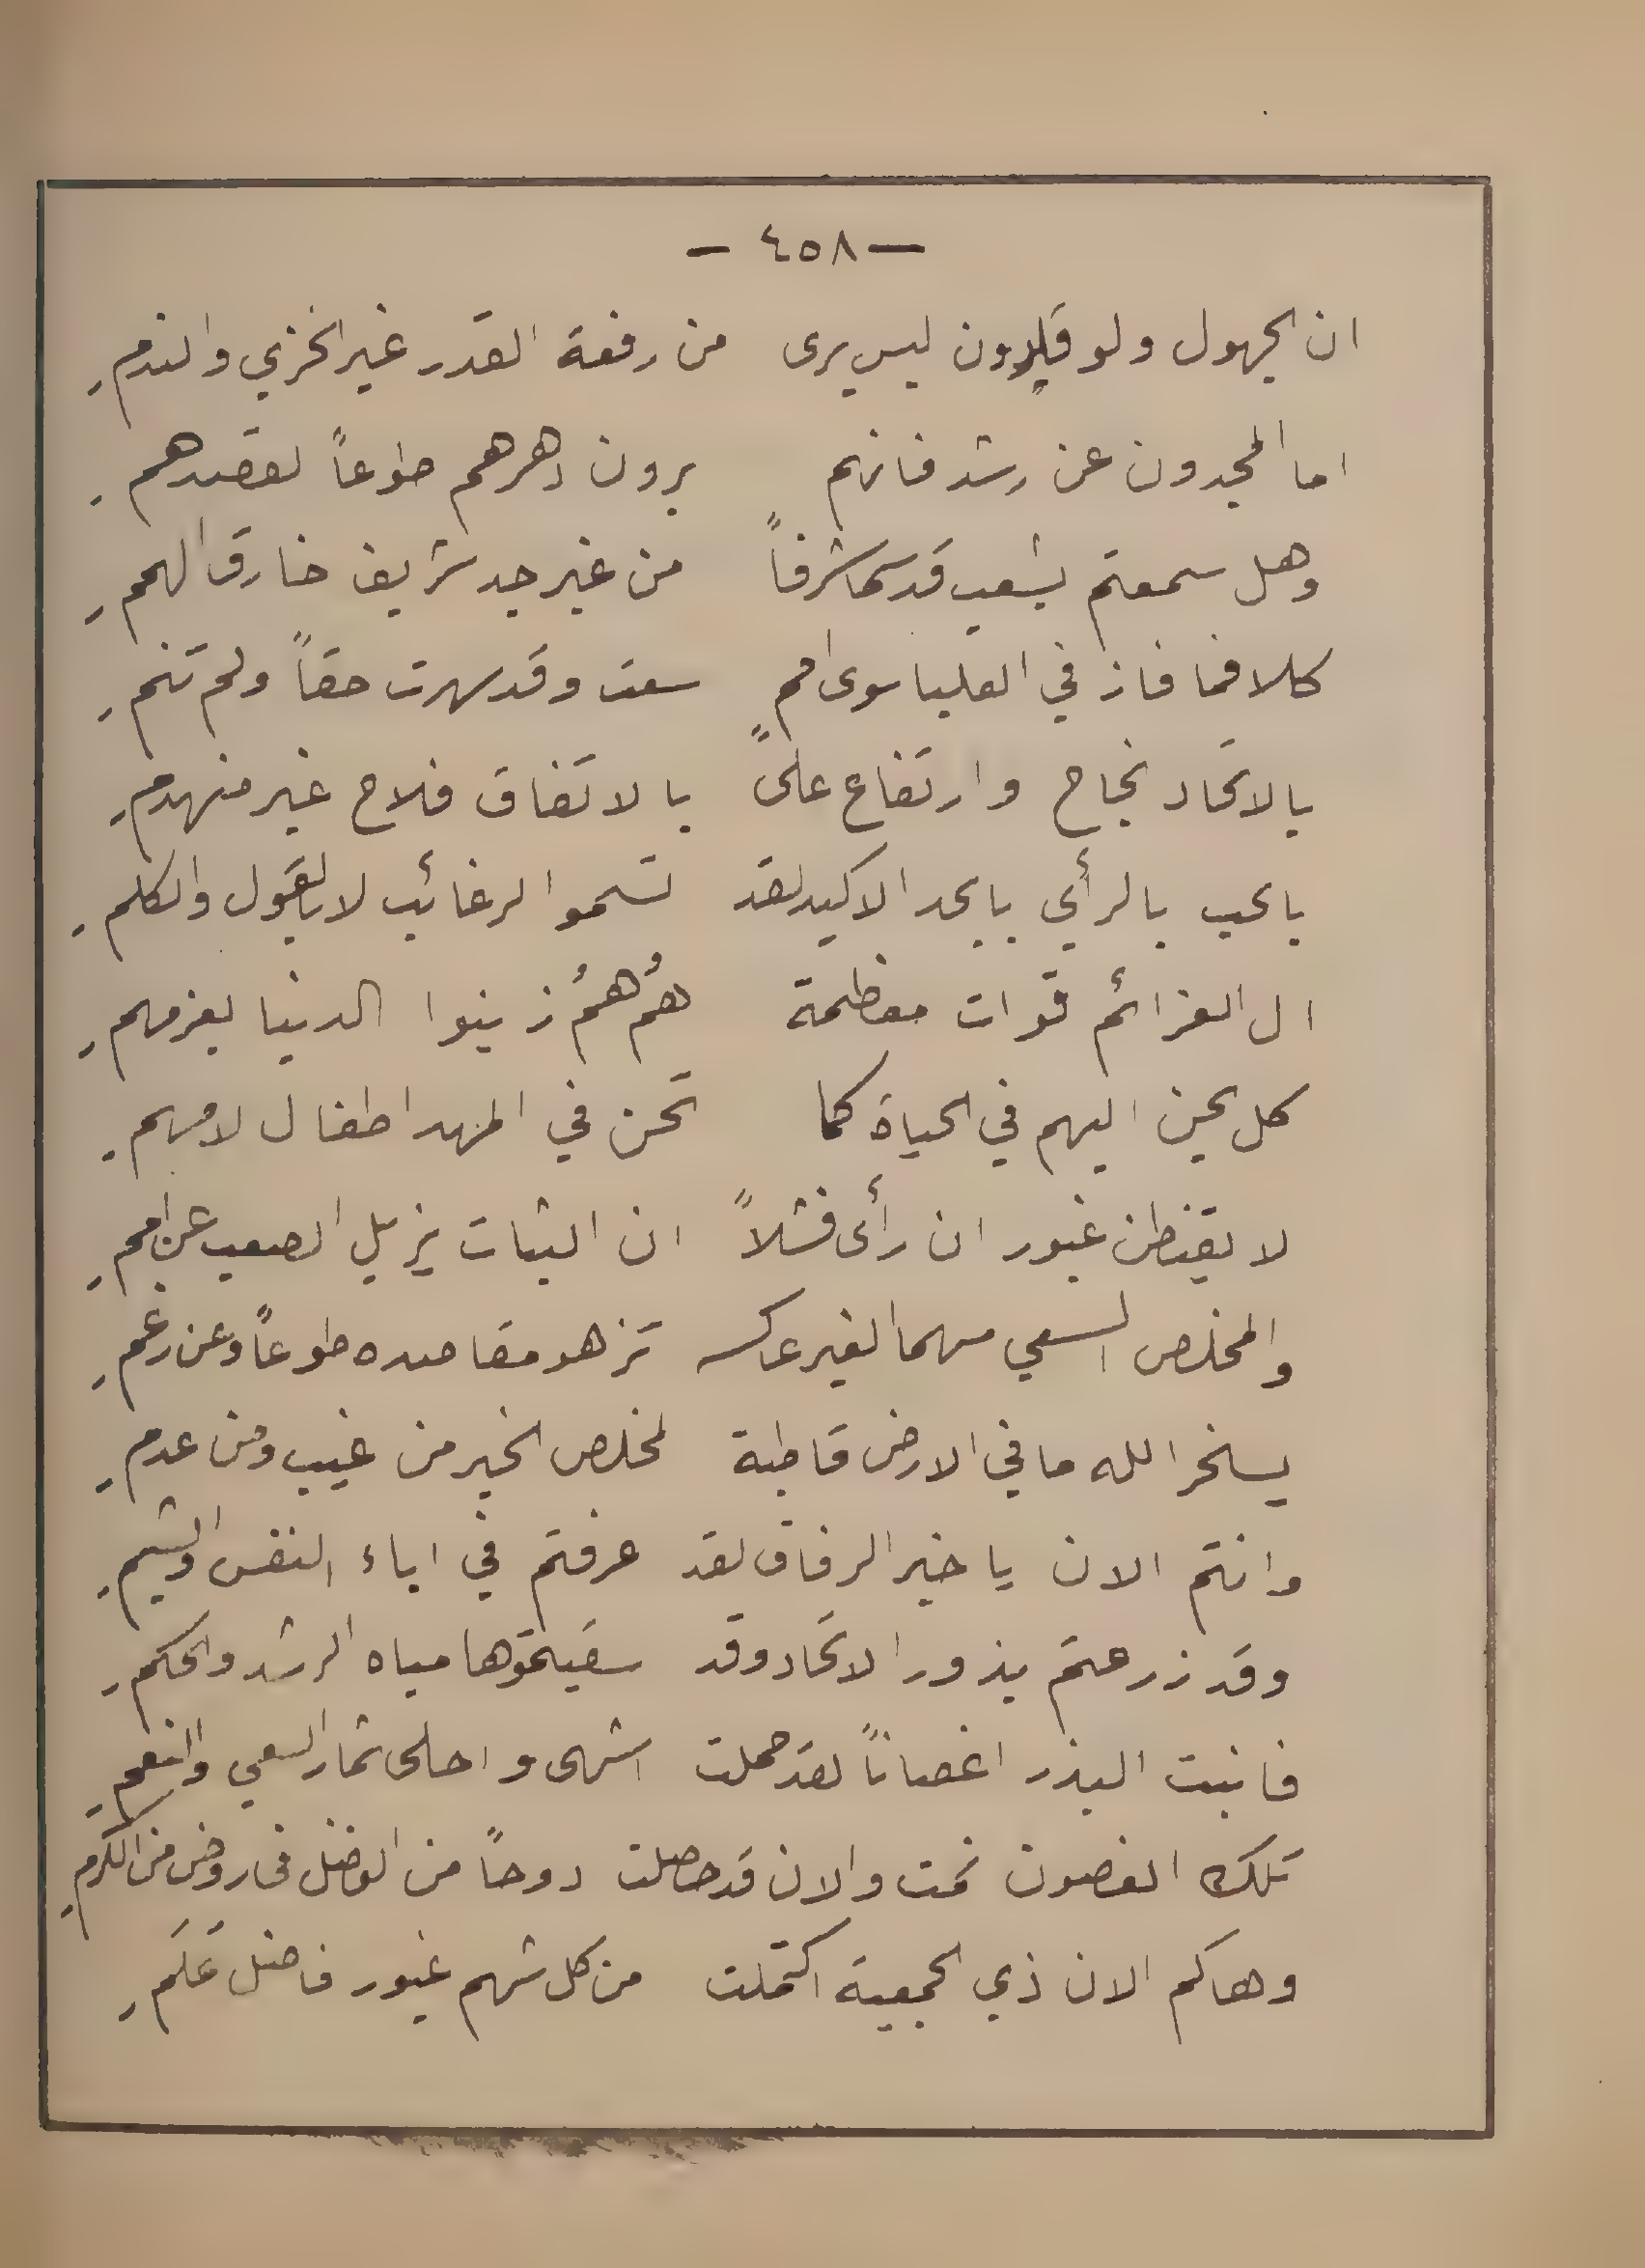 — ٤٥٨ —
ان الجهول ولو قليدون ليس يرى من رفعة القدر غير الخزي والندمِ
اما المجدون عن رشد فانهم يرون دهرهم طوعاً لقصدهمِ
وهل سمعتم بشعب قد سما شرفاً من غير جد شريف خارق الهممِ
كلا فما فاز في العليا سوى اممٍ سعت وقد سهرت حقاً ولم تنمِ
بالاتحاد نجاح وارتفاع علىً بالاتفاق فلاح غير منهدمِ
بالحب بالرأي بالجد الاكيد لقد تسمو الرغائب لا بالقول والكلمِ
ال العزائم قوات معظمة همُ همُ زينوا الدنيا بعزمهمِ
كل يحن اليهم في الحياة كما تحن في المهد اطفال لامهمِ
لا يقنطن غيور ان رأى فشلاً ان الثبات يزيل الصعب عن اممِ
والمخلص السعي مهما الغير عاكسه تزهو مقاصده طوعاً وعن رغمِ
يسخر الله ما في الارض قاطبة لمخلص الخير من غيب ومن عدمِ
وانتم الان يا خير الرفاق لقد عرفتم في اباء النفس والشيمِ
وقد زرعتم بذور الاتحاد وقد سقيتموها مياه الرشد والحكمِ
فانبت البذر اغصاناً لقد حملت اشهى واحلى ثمار السعي والنعمِ
تلك الغصون نمت والان قد حصلت دوحاً من الفضل في روض من الكرمِ
وهاكم الان ذي الجمعية اكتملت من كل شهم غيور فاضل عَلَمِ